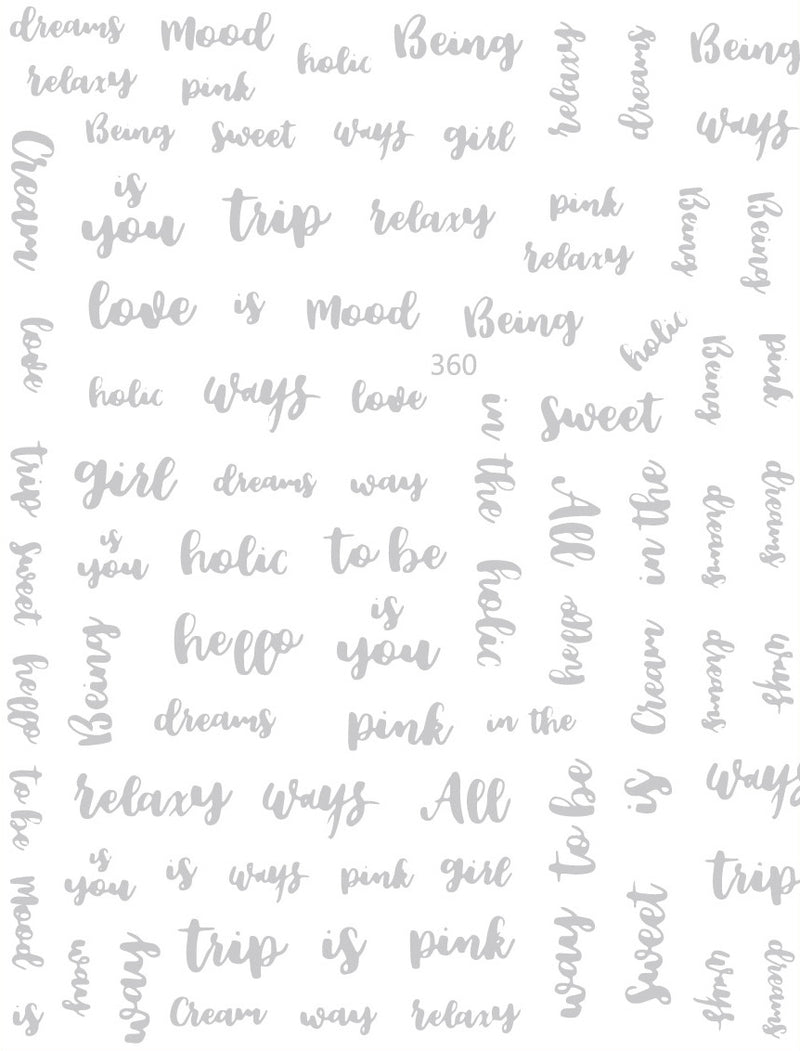 dreams Mood holic Being relaxy dreams Being
relaxy pink
Being sweet ways girl ways
Cream
is
you trip relaxy pink Being Being
relaxy
love is Mood Being holic
love 360 Being pink
holic ways love in the sweet
trip girl dreams way All in the dreams dreams
sweet is
you holic to be holic hello
hello Being hello is
you Cream dreams ways
dreams pink in the
to be relaxy ways All way to be is ways
Mood is
you is ways pink girl sweet trip
way way trip is pink ways dreams
is Cream way relaxy